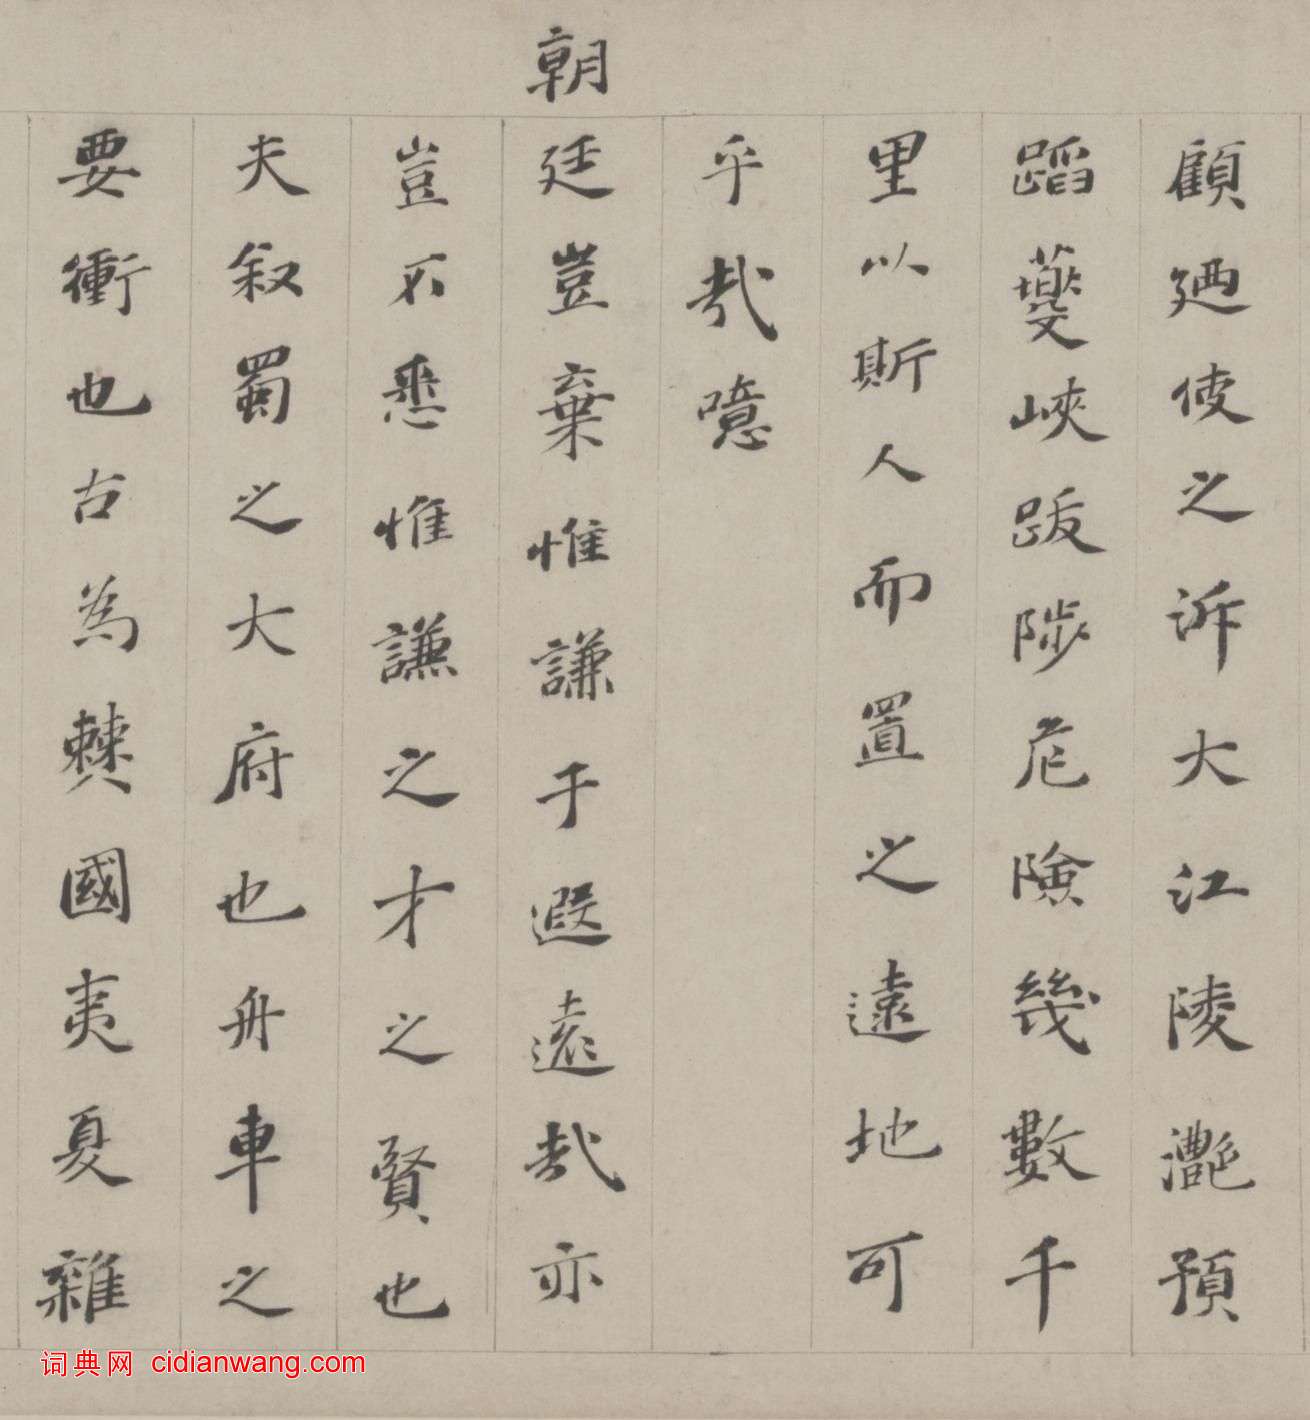 顧廼使之泝大江陵灔預
蹈夔峽跋陟危險幾數千
里以斯人而置之遠地可
乎哉噫
朝
廷豈棄惟謙于遐遠哉亦
豈不悉惟謙之才之賢也
夫叙蜀之大府也舟車之
要衝也古為僰國夷夏雜
词典网 cidianwang.com